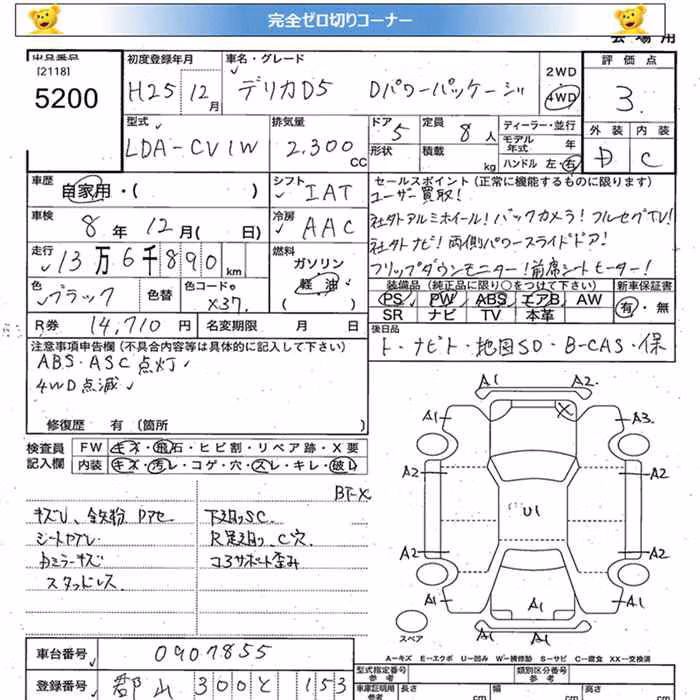 完全ゼロ切りコーナー
会場用
出品番号 初度登録年月 車名・グレード 評価点
[2118]
5200
H25 12月 デリカD5 Dパワーパッケージ 2WD 4WD 3
型式 排気量 ドア 定員 ディーラー・並行 外装 内装
LDA-CV1W 2,300CC 5 8人 モデル年式 年
形状 積載 kg ハンドル 左・右 D C
車歴 自家用・( ) シフト IAT
セールスポイント(正常に機能するものに限ります)
ユーザー買取!
車検 8年12月( 日) 冷房 AAC
社外アルミホイール!バックカメラ!フルセグTV!
社外ナビ!両側パワースライドドア!
走行 13万6千890km 燃料 ガソリン 軽油
フリップダウンモニター!前席シートヒーター!
色 ブラック 色替 色コードNo X37
装備品(純正品に限り○をつけて下さい) 新車保証書
PS PW ABS エアB AW 有・無
SR ナビ TV 本革
R券 14,710円 名変期限 月 日
後日品
ト・ナビト・地図SD・B-CAS・保
注意事項申告欄(不具合内容等は具体的に記入して下さい)
ABS・ASC点灯
4WD点滅
修復歴 有(箇所 )
検査員記入欄 FW キズ・飛石・ヒビ割・リペア跡・X要
内装 キズ・汚レ・コゲ・穴・スレ・キレ・破レ
BT-X
キズU、鉄粉 Dアセ 下廻りSC
シートヤブレ R足廻り、C穴
カミラーキズ コアサポート歪み
スタッドレス
A1 A2
A1 A3
A2 A2
U1
A2 A2
A1 A1 A1
A1 A1
スペア
A-キズ E-エクボ U-凹み W-補修跡 S-サビ C-腐食 XX-交換済
車台番号 0907855
登録番号 郡山 300 と 153
型式指定番号 参考 類別区分番号 参考
車庫証明用 参考 長さ cm 幅 cm 高さ cm